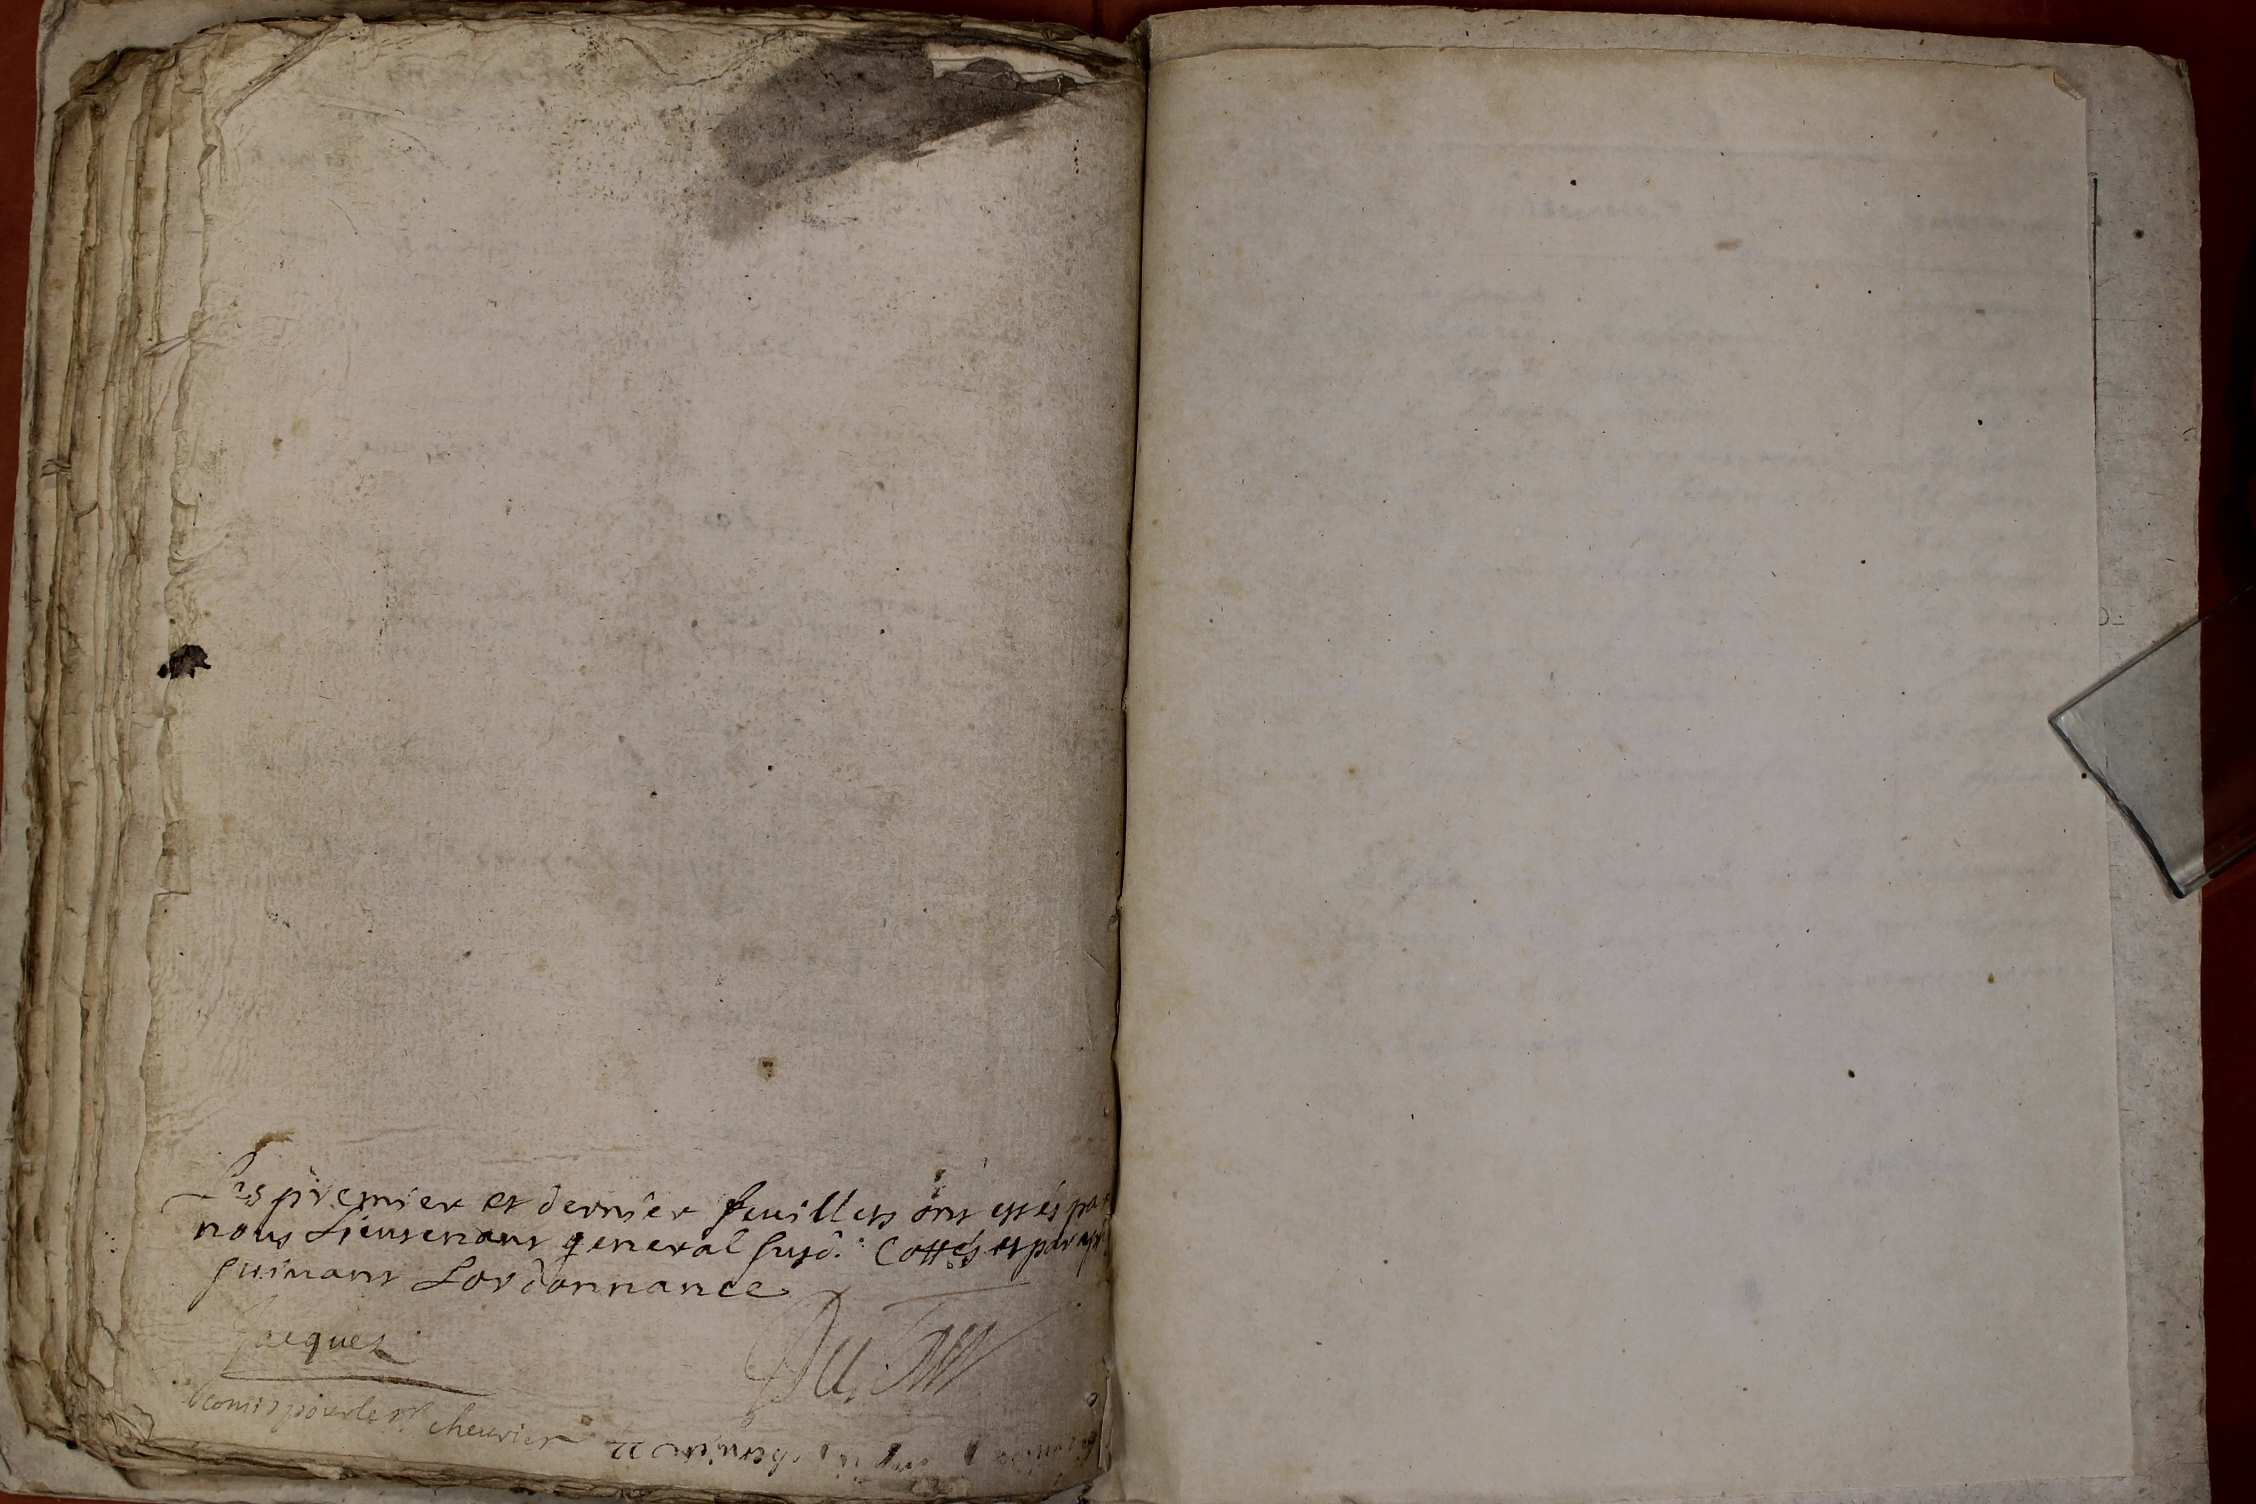 Les premier et dernier feuillets ont estés par
nous Lieutenant general susd. Cottés et paraphé
suivant Lordonnance
Jacques
Comis pour le Sr chevrier